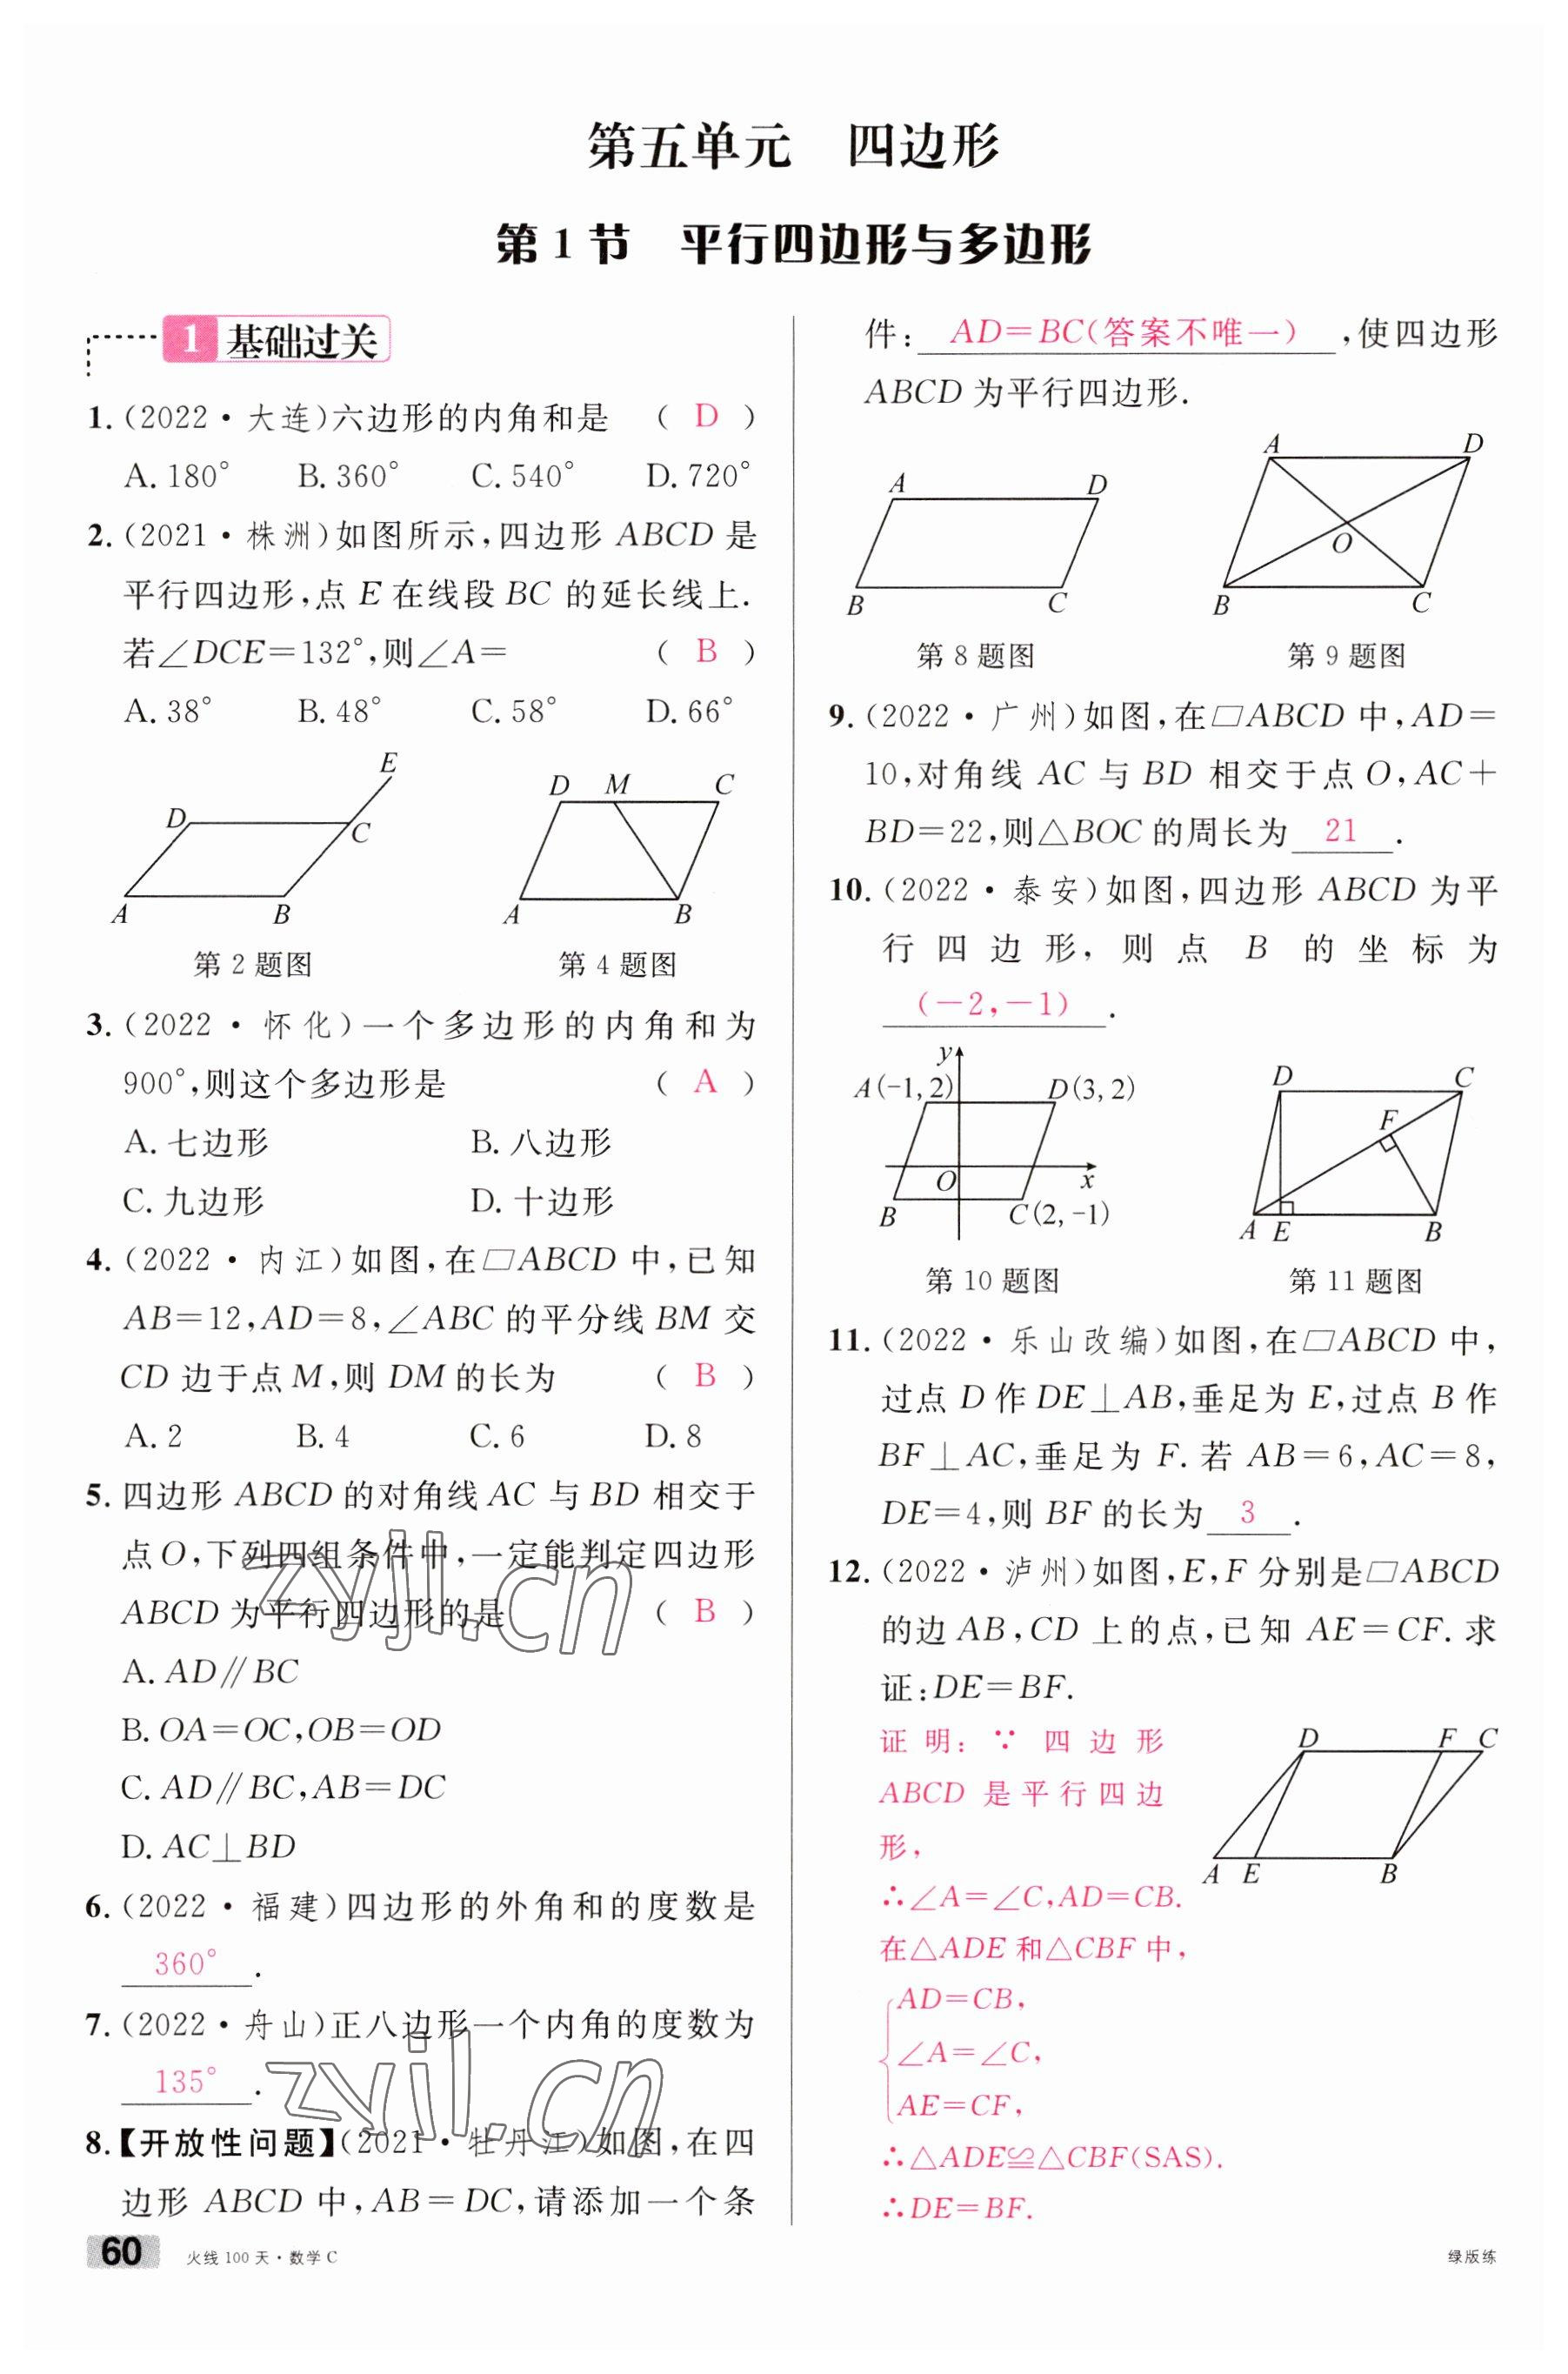 第五单元　四边形
第 1 节　平行四边形与多边形
1 基础过关
1. (2022·大连)六边形的内角和是 ( D )
A. 180° B. 360° C. 540° D. 720°
2. (2021·株洲)如图所示,四边形 ABCD 是
平行四边形,点 E 在线段 BC 的延长线上.
若∠DCE=132°,则∠A= ( B )
A. 38° B. 48° C. 58° D. 66°
D E C A B
D M C A B
第 2 题图 第 4 题图
3. (2022·怀化)一个多边形的内角和为
900°,则这个多边形是 ( A )
A. 七边形 B. 八边形
C. 九边形 D. 十边形
4. (2022·内江)如图,在▱ABCD 中,已知
AB=12,AD=8,∠ABC 的平分线 BM 交
CD 边于点 M,则 DM 的长为 ( B )
A. 2 B. 4 C. 6 D. 8
5. 四边形 ABCD 的对角线 AC 与 BD 相交于
点 O,下列四组条件中,一定能判定四边形
ABCD 为平行四边形的是 ( B )
A. AD∥BC
B. OA=OC,OB=OD
C. AD∥BC,AB=DC
D. AC⊥BD
6. (2022·福建)四边形的外角和的度数是
360° .
7. (2022·舟山)正八边形一个内角的度数为
135° .
8.【开放性问题】(2021·牡丹江)如图,在四
边形 ABCD 中,AB=DC,请添加一个条
件: AD=BC(答案不唯一) ,使四边形
ABCD 为平行四边形.
A D B C
A D O B C
第 8 题图 第 9 题图
9. (2022·广州)如图,在▱ABCD 中,AD=
10,对角线 AC 与 BD 相交于点 O,AC+
BD=22,则△BOC 的周长为 21 .
10. (2022·泰安)如图,四边形 ABCD 为平
行四边形,则点 B 的坐标为
(-2,-1) .
y A(-1,2) D(3,2) O x B C(2,-1)
D C F A E B
第 10 题图 第 11 题图
11. (2022·乐山改编)如图,在▱ABCD 中,
过点 D 作 DE⊥AB,垂足为 E,过点 B 作
BF⊥AC,垂足为 F. 若 AB=6,AC=8,
DE=4,则 BF 的长为 3 .
12. (2022·泸州)如图,E,F 分别是▱ABCD
的边 AB,CD 上的点,已知 AE=CF. 求
证:DE=BF.
D F C A E B
证明:∵四边形
ABCD 是平行四边
形,
∴∠A=∠C,AD=CB.
在△ADE 和△CBF 中,
AD=CB,
∠A=∠C,
AE=CF,
∴△ADE≌△CBF(SAS).
∴DE=BF.
zyjl.cn
zyjl.cn
60 火线 100 天·数学 C
绿版练